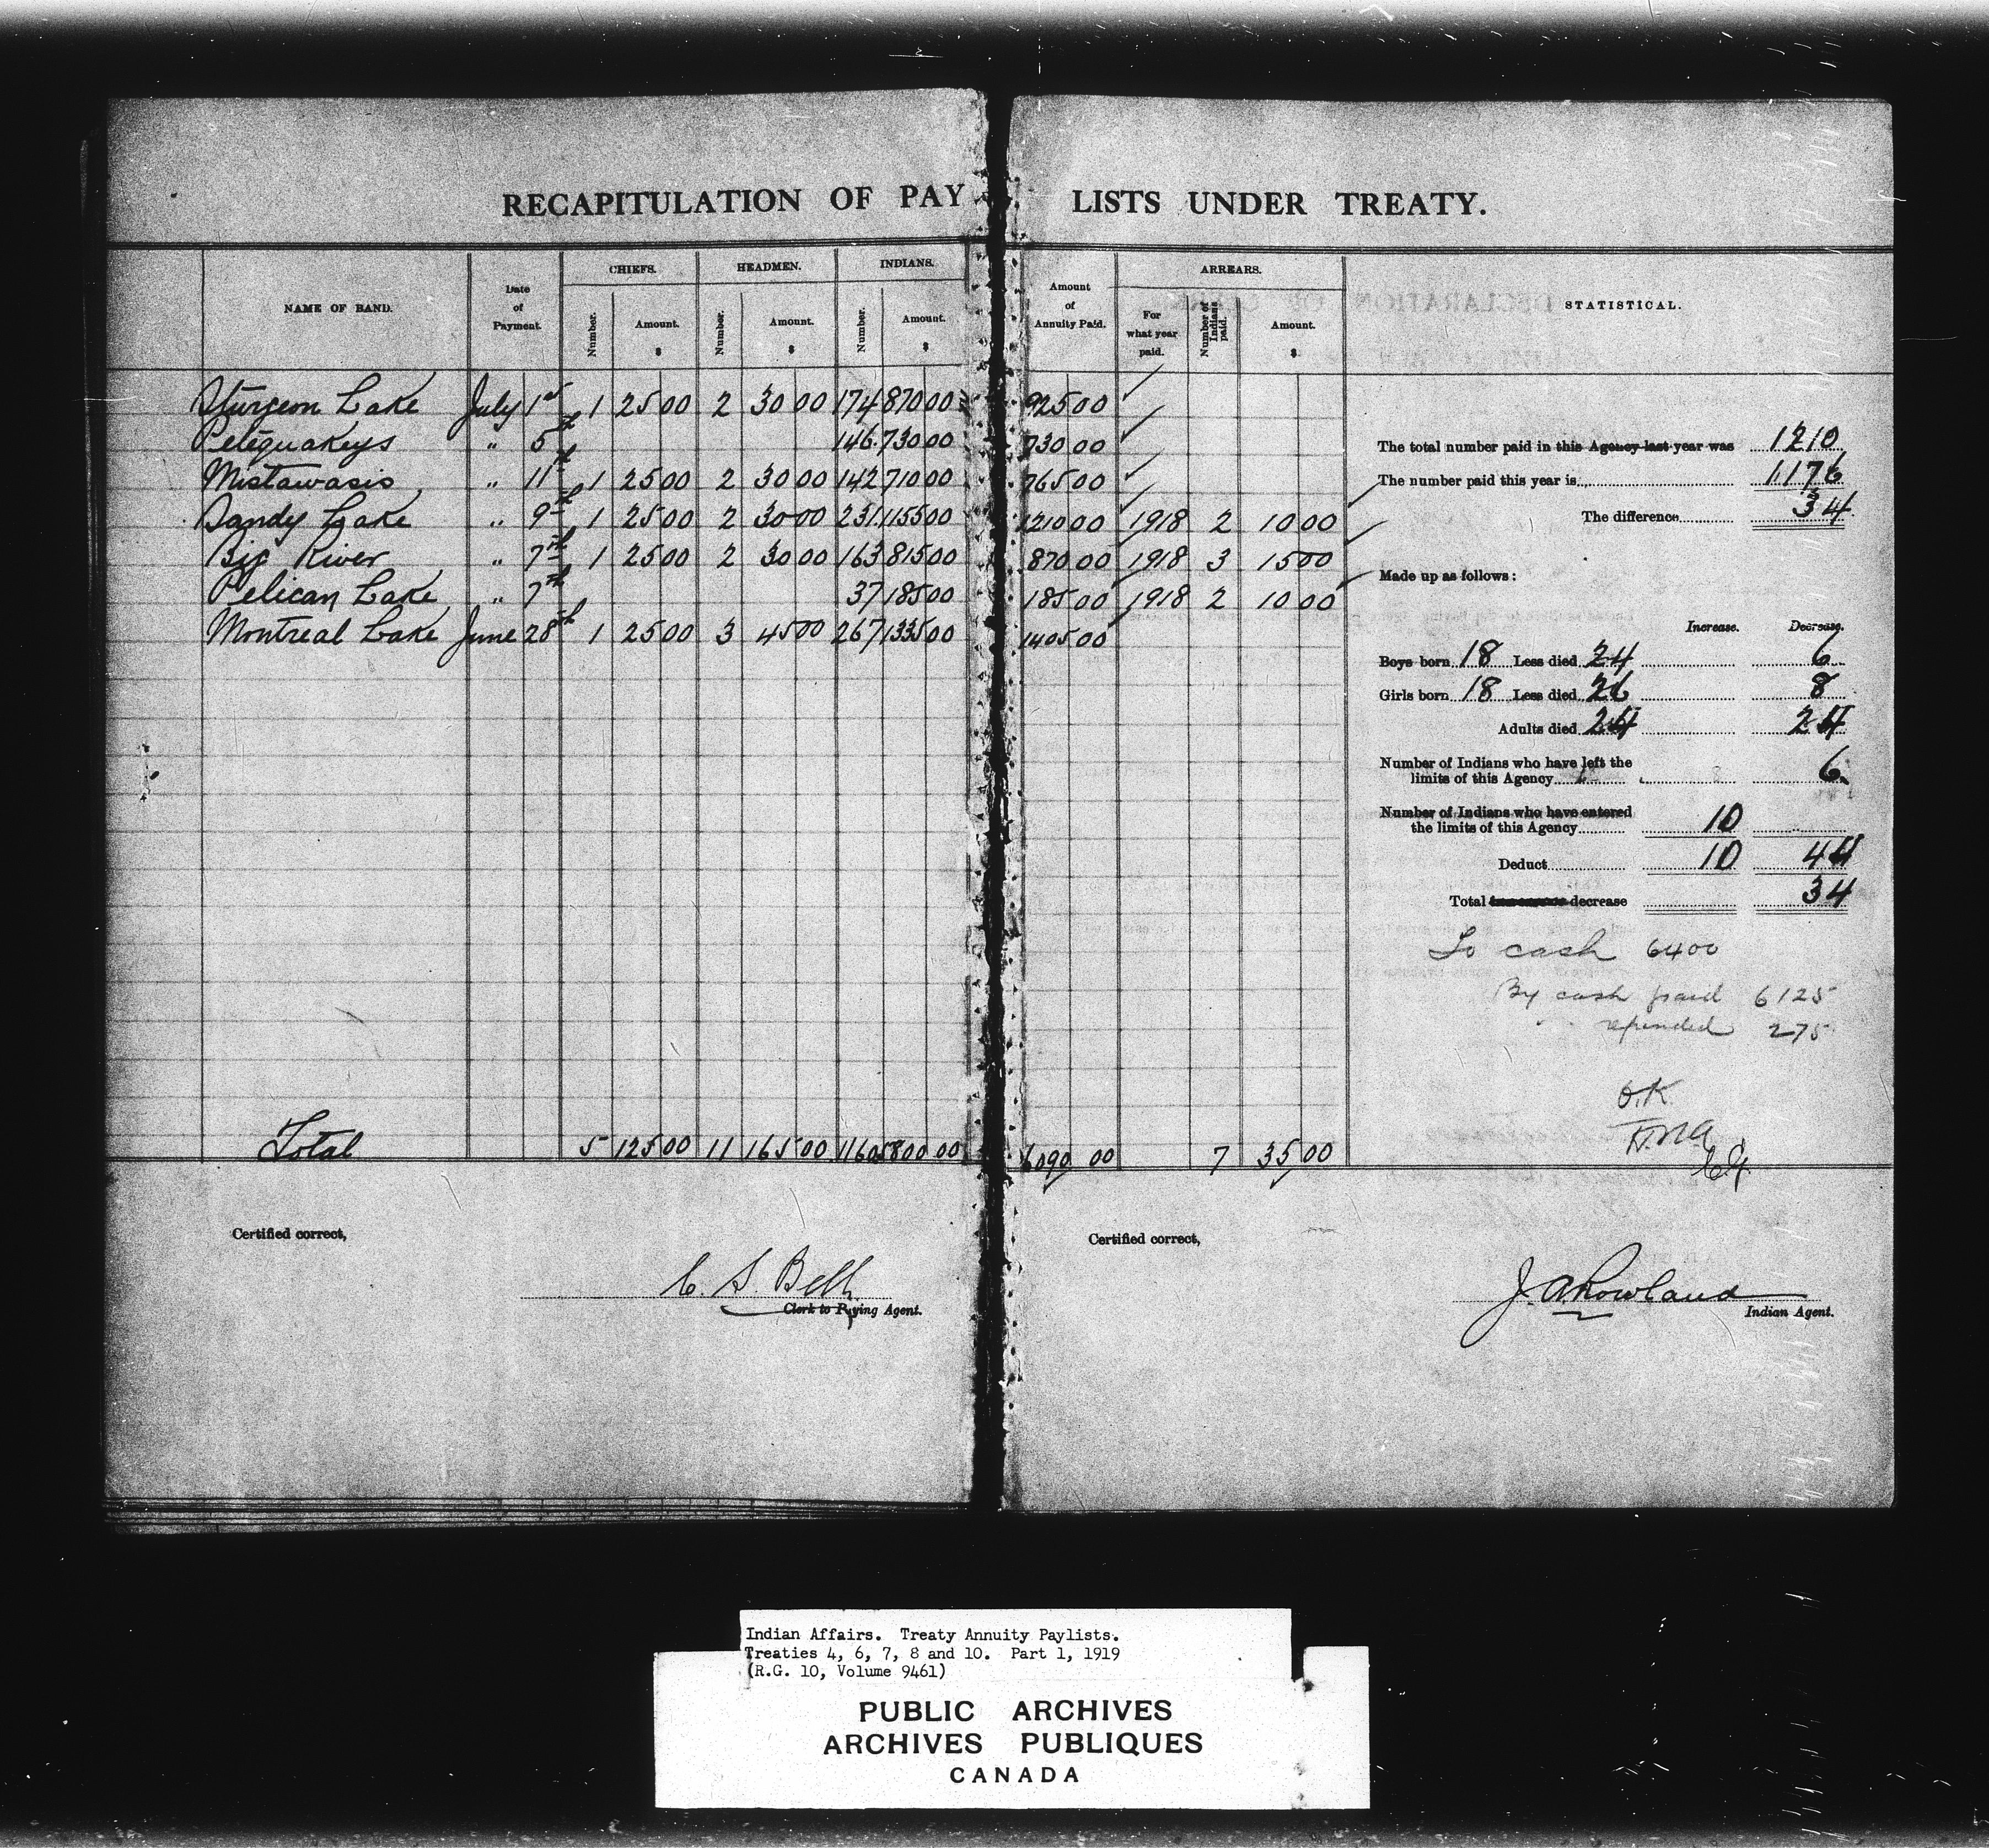 RECAPITULATION OF PAY LISTS UNDER TREATY.
NAME OF BAND.
Date of Payment.
CHIEFS.
Number.
Amount.
$
HEADMEN.
Number.
Amount.
$
INDIANS.
Number.
Amount.
$
Amount of Annuity Paid.
ARREARS.
For what year paid.
Number of Indians paid.
Amount.
$
STATISTICAL.
Sturgeon Lake July 1st 1 25 00 2 30 00 174 870 00 925 00
Petequakeys " 5th 146 730 00 730 00
Mistawasis " 11th 1 25 00 2 30 00 142 710 00 765 00
Sandy Lake " 9th 1 25 00 2 30 00 231 1155 00 1210 00 1918 2 10 00
Big River " 7th 1 25 00 2 30 00 163 815 00 870 00 1918 3 15 00
Pelican Lake " 7th 37 185 00 185 00 1918 2 10 00
Montreal Lake June 28th 1 25 00 3 45 00 267 1335 00 1405 00
Total 5 125 00 11 165 00 1160 5800 00 6090 00 7 35 00
The total number paid in this Agency last year was 1210
The number paid this year is 1176
The difference 34
Made up as follows:
Increase. Decrease.
Boys born 18 Less died 24 6
Girls born 18 Less died 26 8
Adults died 24 24
Number of Indians who have left the
limits of this Agency 6
Number of Indians who have entered
the limits of this Agency 10
Deduct 10 44
Total decrease 34
To cash 6400
By cash paid 6125
" " refunded 275
O.K.
Certified correct,
C. S. Bell
Clerk to Paying Agent.
Certified correct,
J. A. Rowland
Indian Agent.
Indian Affairs. Treaty Annuity Paylists.
Treaties 4, 6, 7, 8 and 10. Part 1, 1919
(R.G. 10, Volume 9461)
PUBLIC ARCHIVES
ARCHIVES PUBLIQUES
CANADA